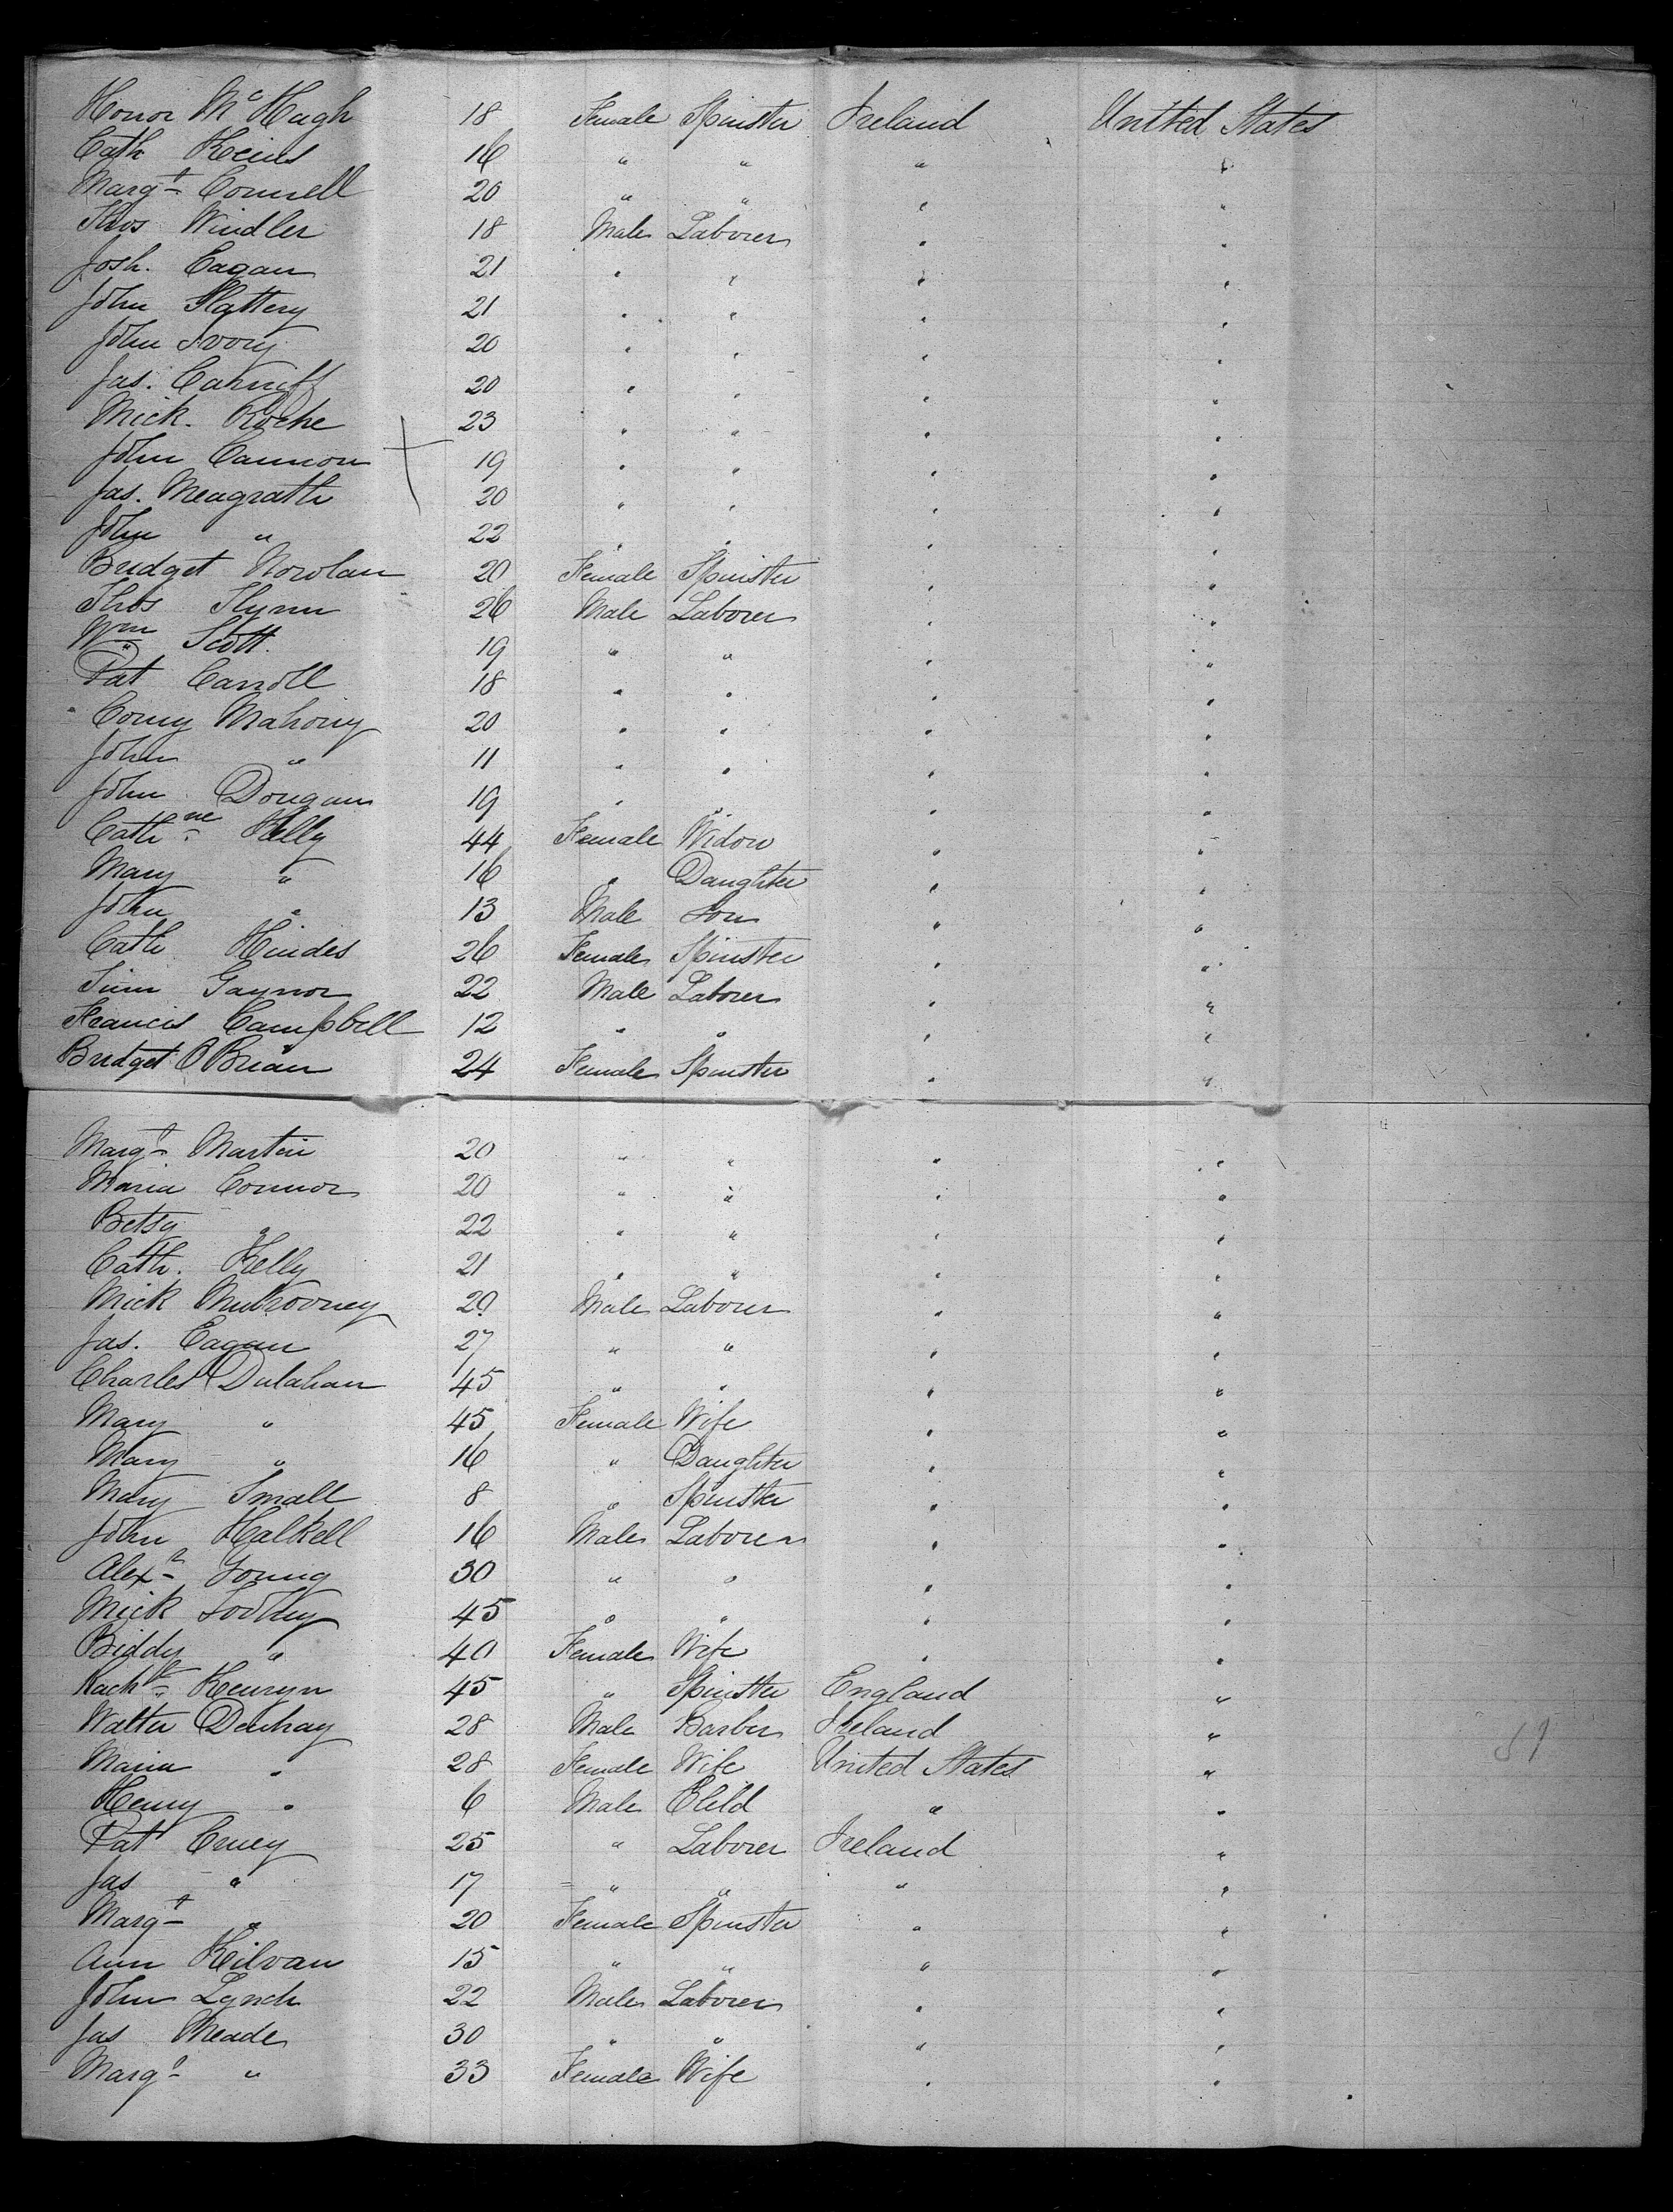 Honor McHugh 18 Female Spinster Ireland United States
Cath 16 " " " "
Margt Connell 20 " " " "
Thos Windler 18 Male Laborer " "
Josh. Eagan 21 " " " "
John Slattery 21 " " " "
John Ivory 20 " " " "
Jas. Canniff 20 " " " "
Mick. Roche 23 " " " "
John Cannon 19 " " " "
Jas. Meagrath 20 " " " "
John " 22 " " " "
Bridget Nowlan 20 Female Spinster " "
Thos Flynn 26 Male Laborer " "
Wm Scott. 19 " " " "
Pat Carroll 18 " " " "
Corny Mahony 20 " " " "
John " 11 " " " "
John Dougan 19 " " " "
Cathne Kelly 44 Female Widow " "
Mary " 16 " Daughter " "
John " 13 Male Son " "
Cath Hindes 26 Female Spinster " "
Gaynor 22 Male Laborer " "
Francis Campbell 12 " " " "
Bridget OBrian 24 Female Spinster " "
Margt Martin 20 " " " "
Maria Connor 20 " " " "
Betsy " 22 " " " "
Cath. Kelly 21 " " " "
Mick Mulrovney 20 Male Laborer " "
Jas. Eagan 27 " " " "
Charles Dulahan 45 " " " "
Mary " 45 Female Wife " "
Mary " 16 " Daughter " "
Mary Small 8 " Spinster " "
John Halkell 16 Male Laborer " "
Alexr Young 30 " " " "
Mick 45 " " " "
Biddy " 40 Female Wife " "
45 " Spinster England "
Walter 28 Male Barber Ireland "
Maria " 28 Female Wife United States "
Henry " 6 Male Child " "
Pat Cruey 25 " Laborer Ireland "
Jas " 17 " " " "
Margt " 20 Female Spinster " "
Ann Kilvan 15 " " " "
John Lynch 22 Male Laborer " "
Jas Meade 30 " " " "
Margt " 33 Female Wife " "